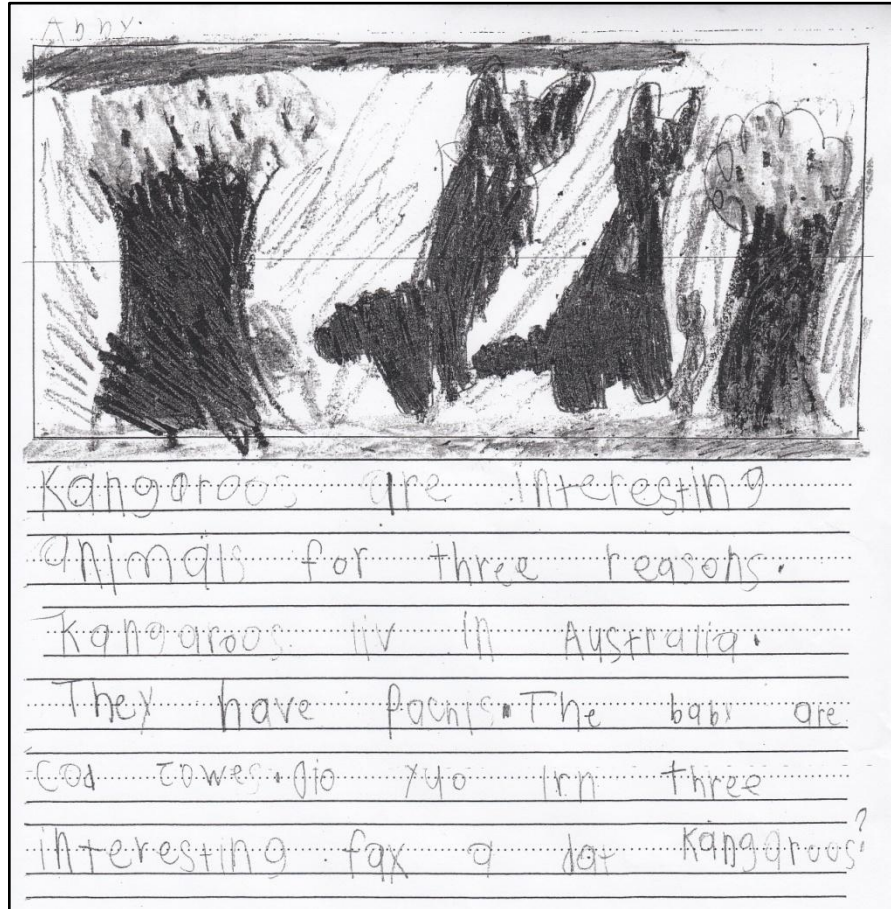 Abby.
Kangaroos are interesting
animals for three reasons.
Kangaroos liv in Australia.
They have pochis. The baby are
cod towes. Dio yuo lrn three
interesting fax a dat Kangaroos?